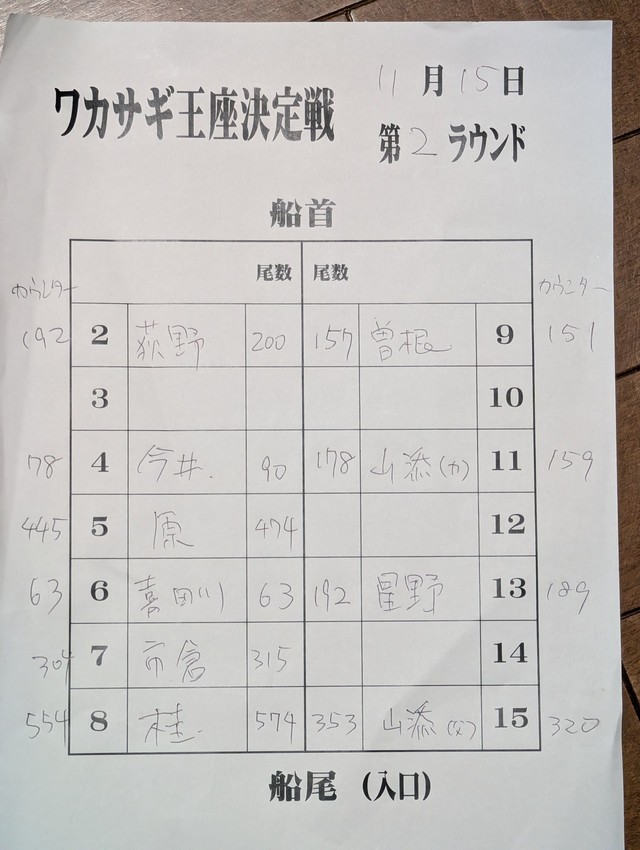 ワカサギ王座決定戦
11月15日
第2ラウンド
船首
尾数 尾数
カウンター カウンター
192 2 荻野 200 157 曽根 9 151
3 10
78 4 今井. 90 178 山添(カ) 11 159
445 5 原 474 12
63 6 喜田川 63 192 星野 13 189
304 7 市倉 315 14
554 8 桂. 574 353 山添 15 320
船尾 (入口)